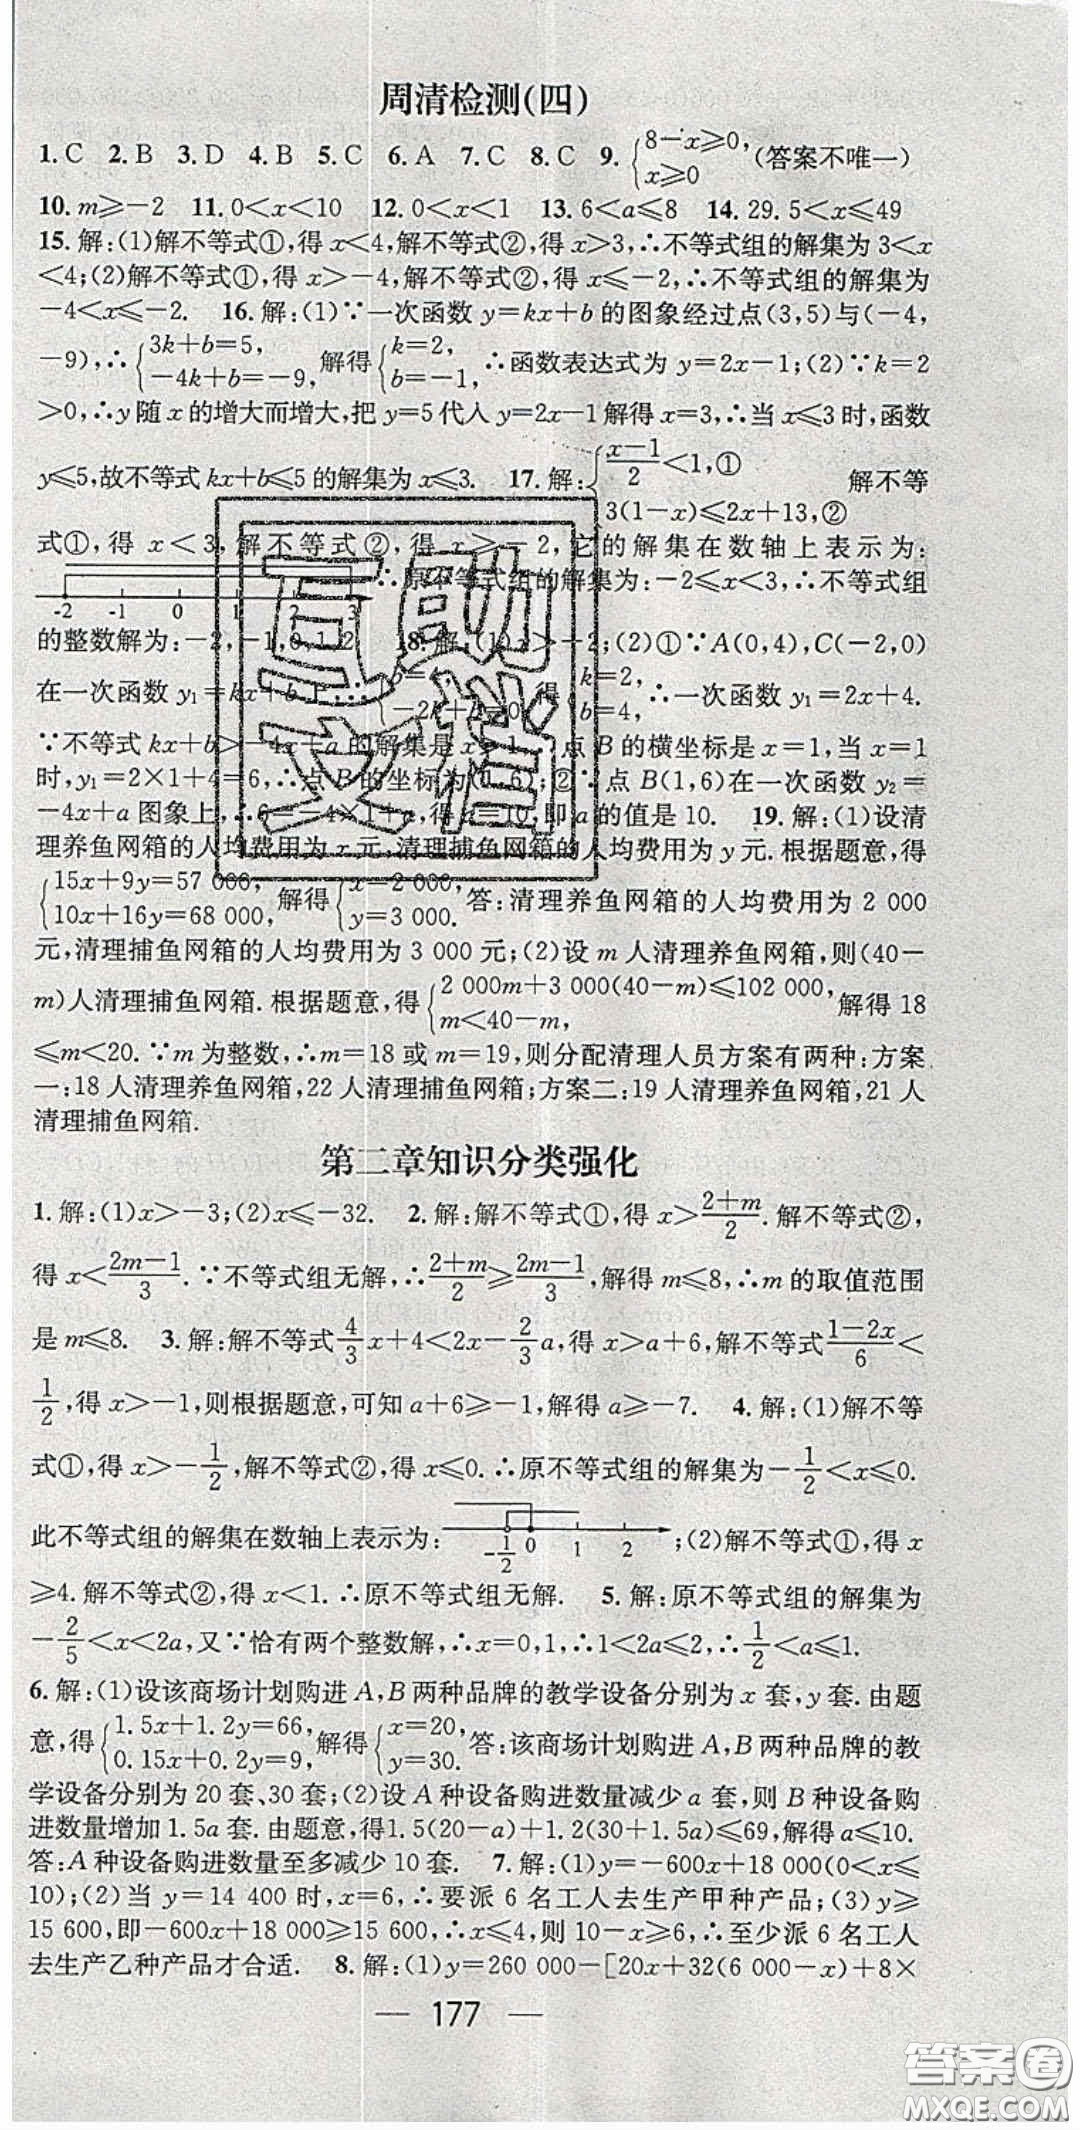 周清检测(四)
1. C 2. B 3. D 4. B 5. C 6. A 7. C 8. C 9. {8-x≥0, x≥0 (答案不唯一)
10. m≥-2 11. 0<x<10 12. 0<x<1 13. 6<a≤8 14. 29.5<x≤49
15. 解:(1)解不等式①,得 x<4,解不等式②,得 x>3,∴不等式组的解集为 3<x
<4;(2)解不等式①,得 x>-4,解不等式②,得 x≤-2,∴不等式组的解集为
-4<x≤-2. 16. 解:(1)∵一次函数 y=kx+b 的图象经过点(3,5)与(-4,
-9),∴{3k+b=5, -4k+b=-9, 解得{k=2, b=-1, ∴函数表达式为 y=2x-1;(2)∵k=2
>0,∴y 随 x 的增大而增大,把 y=5代入 y=2x-1解得 x=3,∴当 x≤3时,函数
y≤5,故不等式 kx+b≤5的解集为 x≤3. 17. 解:{(x-1)/2<1,① 3(1-x)≤2x+13,② 解不等
式①,得 x<3,解不等式②,得 x≥-2,它的解集在数轴上表示为:
-2 -1 0 1 2 3 ∴原不等式组的解集为:-2≤x<3,∴不等式组
的整数解为:-2,-1,0,1,2. 18. 解:(1)x>-2;(2)①∵A(0,4),C(-2,0)
在一次函数 y₁=kx+b上,∴{b=4, -2k+b=0, 得{k=2, b=4, ∴一次函数 y₁=2x+4.
∵不等式 kx+b>-4x+a的解集是 x>1,∴点 B 的横坐标是 x=1,当 x=1
时,y₁=2×1+4=6,∴点 B 的坐标为(1,6);②∵点 B(1,6)在一次函数 y₂=
-4x+a 图象上,∴6=-4×1+a,得 a=10,即 a 的值是 10. 19. 解:(1)设清
理养鱼网箱的人均费用为 x 元,清理捕鱼网箱的人均费用为 y 元.根据题意,得
{15x+9y=57 000, 10x+16y=68 000, 解得{x=2 000, y=3 000. 答:清理养鱼网箱的人均费用为 2 000
元,清理捕鱼网箱的人均费用为 3 000 元;(2)设 m 人清理养鱼网箱,则(40-
m)人清理捕鱼网箱.根据题意,得{2 000m+3 000(40-m)≤102 000, m<40-m, 解得 18
≤m<20.∵m 为整数,∴m=18 或 m=19,则分配清理人员方案有两种:方案
一:18 人清理养鱼网箱,22 人清理捕鱼网箱;方案二:19 人清理养鱼网箱,21 人
清理捕鱼网箱.
第二章知识分类强化
1. 解:(1)x>-3;(2)x≤-32. 2. 解:解不等式①,得 x>(2+m)/2.解不等式②,
得 x<(2m-1)/3.∵不等式组无解,∴(2+m)/2≥(2m-1)/3,解得 m≤8,∴m 的取值范围
是 m≤8. 3. 解:解不等式4/3x+4<2x-2/3a,得 x>a+6,解不等式(1-2x)/6<
1/2,得 x>-1,则根据题意,可知 a+6≥-1,解得 a≥-7. 4. 解:(1)解不等
式①,得 x>-1/2,解不等式②,得 x≤0.∴原不等式组的解集为-1/2<x≤0.
此不等式组的解集在数轴上表示为: -1/2 0 1 2 ;(2)解不等式①,得 x
≥4.解不等式②,得 x<1.∴原不等式组无解. 5. 解:原不等式组的解集为
-2/5<x<2a,又∵恰有两个整数解,∴x=0,1,∴1<2a≤2,∴1/2<a≤1.
6. 解:(1)设该商场计划购进 A,B两种品牌的教学设备分别为 x 套,y 套.由题
意,得{1.5x+1.2y=66, 0.15x+0.2y=9, 解得{x=20, y=30. 答:该商场计划购进A,B两种品牌的教
学设备分别为 20 套、30 套;(2)设 A 种设备购进数量减少 a 套,则 B种设备购
进数量增加 1.5a 套.由题意,得1.5(20-a)+1.2(30+1.5a)≤69,解得a≤10.
答:A 种设备购进数量至多减少 10 套. 7. 解:(1)y=-600x+18 000(0<x≤
10);(2)当 y=14 400 时,x=6,∴要派 6 名工人去生产甲种产品;(3)y≥
15 600,即-600x+18 000≥15 600,∴x≤4,则 10-x≥6,∴至少派 6 名工人
去生产乙种产品才合适. 8. 解:(1)y=260 000-[20x+32(6 000-x)+8×
— 177 —
互助文档
答案圈
MXQE.COM